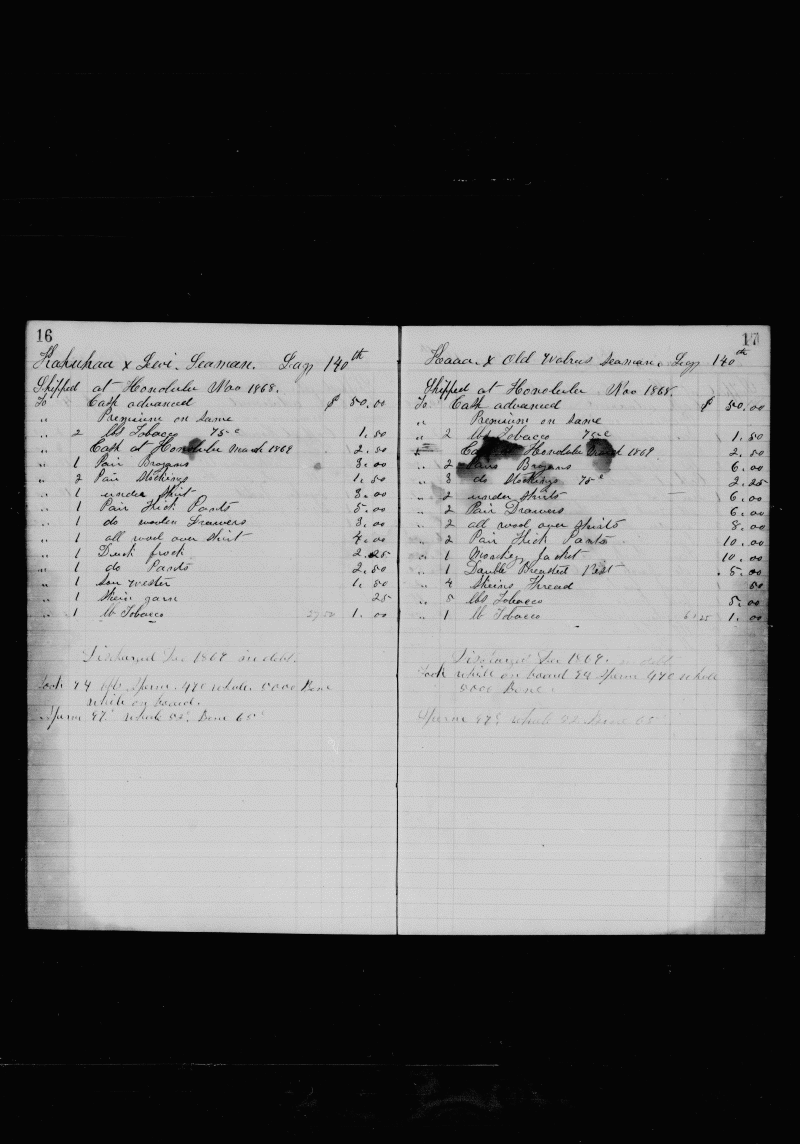 16
Kahuhaa x Levi. Seaman. Lay 140th
Shipped at Honolulu Nov 1868.
To Cash advanced $ 50.00
" Premium on same
" 2 lbs Tobacco 75c 1.50
" Cash at Honolulu March 1869 2.50
" 1 Pair Brogans 3.00
" 2 Pair Stockings 1.50
" 1 under shirt 3.00
" 1 Pair Thick Pants 5.00
" 1 do woolen Drawers 3.00
" 1 all wool over shirt 4.00
" 1 Duck frock 2.25
" 1 do Pants 2.50
" 1 Sou wester 1.50
" 1 skein yarn 25
" 1 lb Tobacco 1.00
Discharged Dec 1869 in debt.
Took 94 Sperm. 470 whale. 5000 Bone
while on board.
Sperm whale Bone 65c
17
Haaa. x Old Walrus Seaman. Lay 140th
Shipped at Honolulu Nov 1868.
To Cash advanced $ 50.00
" Premium on same
" 2 lbs Tobacco 75c 1.50
" Cash at Honolulu March 1869. 2.50
" 2 Pairs Brogans 6.00
" 3 do Stockings 75c 2.25
" 2 under shirts 6.00
" 2 Pair Drawers 6.00
" 2 all wool over shirts 8.00
" 2 Pair Thick Pants 10.00
" 1 Monkey Jacket 10.00
" 1 Double Breasted Vest 5.00
" 4 skeins Thread 50
" 5 lbs Tobacco 5.00
" 1 lb Tobacco 1.00
Discharged Dec 1869. in debt
Took while on board 94 Sperm 470 whale
5000 Bone.
Sperm whale Bone 65